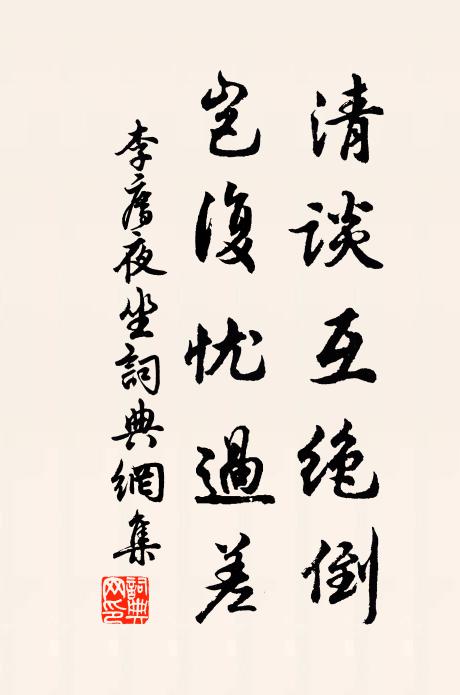 清談互绝倒
豈復忧過差
李廌夜坐詞典網集
詞典网印